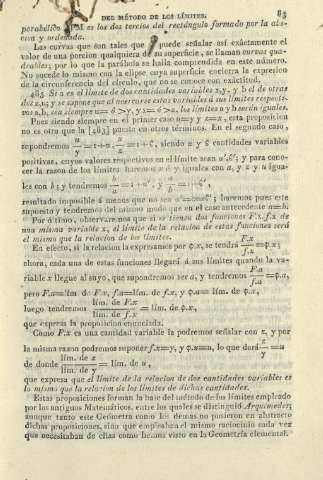 DEL MÉTODO DE LOS LÍMITES. 83
parabólico PM es los dos tercios del rectángulo formado por la abs-
cisa y ordenada.
Las curvas que son tales que puede señalar así exâctamente el
valor de una porcion qualquiera de su superficie, se llaman curvas qua-
drables; por lo que la parábola se halla comprendida en este número.
No sucede lo mismo con la elipse cuya superficie encierra la expresion
de la circunferencia del círculo, que no se conoce con exâctitud.
485 Si a es el límite de dos cantidades variables x, y y b el de otras
dos z, u; y se supone que al acercarse estas variables á sus límites respecti-
vos a, b, sea siempre
Pues siendo siempre en el primer caso u=y y z=x, esta proposicion
no es otra que la [483] puesta en otros términos. En el segundo caso,
supondremos
positivas, cuyos valores respectivos en el límite sean α',б'; y para cono-
cer la razon de los límites haremos x é y iguales con a, y z y u igua-
les con b; y tendremos
resultado imposible á menos que no sea
supuesto y tendremos del mismo modo que en el caso antecedente a=b.
Por último, observaremos que si se tienen dos funciones F.x, f.x de
una misma variable x, el límite de la relacion de estas funciones será
el mismo que la relacion de los límites.
En efecto, si la relacion la expresamos por φ.x, se tendrá F.x/f.x=φ.x;
ahora, cada una de estas funciones llegará á sus límites quando la va-
riable x llegue al suyo, que supondremos ser a, y tendremos F.a/f.a=φ.a,
pero F.a=lím. de F.x, f.a=lím. de f.x, y φ.a= lím. de φ.x,
luego tendremos lím. de F.x/lím. de f.x = lím. de φ.x,
que expresa la proposicion enunciada.
Como F.x es una cantidad variable la podremos señalar con x, y por
la misma razon podremos suponer f.x=y, y φ.x=u, lo que dará x/y=u
de donde lím. de x/lím. de y = lím. de u,
que expresa que el límite de la relacion de dos cantidades variables es
lo mismo que la relacion de los límites de dichas cantidades.
Estas proposiciones forman la base del método de los límites empleado
por los antiguos Matemáticos, entre los quales se distinguió Arquimedes;
aunque tanto este Geómetra como los demas no pusieron en abstracto
dichas proposiciones, sino que empleaban el mismo raciocinio cada vez
que necesitaban de ellas como hemos visto en la Geometría elemental.